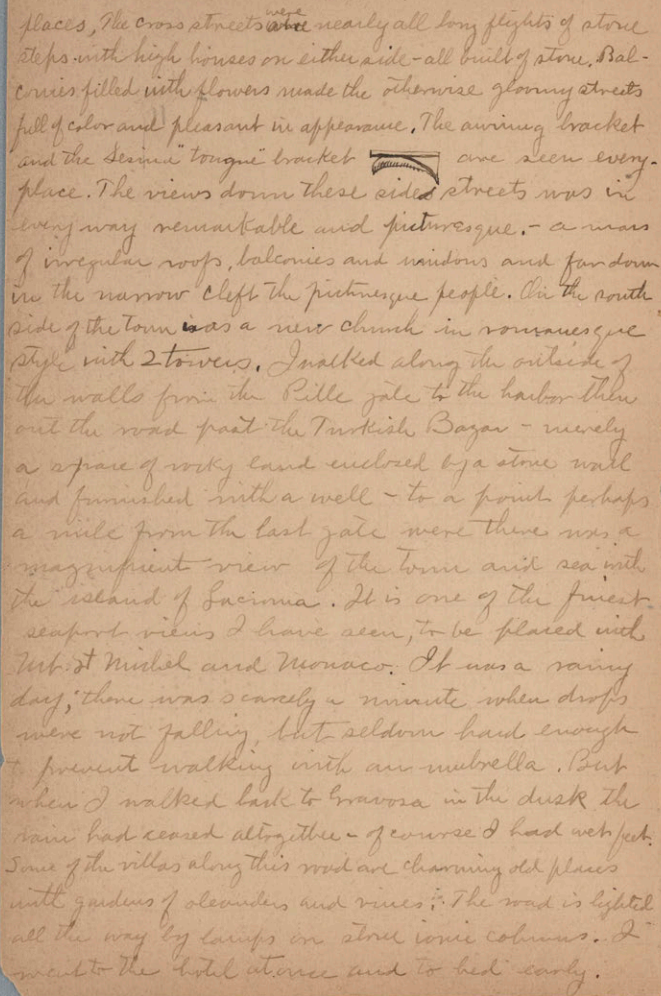 places, The cross streets were nearly all long flights of stone
steps with high houses on either side - all built of stone. Bal-
conies filled with flowers made the otherwise gloomy streets
full of color and pleasant in appearance. The awning bracket
and the "tongue" bracket are seen every-
place. The views down these sides streets was in
every way remarkable and picturesque. - a mass
of irregular roofs, balconies and windows and far down
in the narrow cleft the picturesque people. On the south
side of the town was a new church in romanesque
style with 2 towers. I walked along the outside of
the walls from the Pille gate to the harbor then
out the road past the Turkish Bazar - merely
a space of rocky land enclosed by a stone wall
and furnished with a well - to a point perhaps
a mile from the last gate were there was a
magnificent view of the town and sea with
the island of Lacroma. It is one of the finest
seaport views I have seen, to be placed with
Mt. St Michel and Monaco. It was a rainy
day; there was scarcely a minute when drops
were not falling, but seldom hard enough
to prevent walking with an umbrella. But
when I walked back to Gravosa in the dusk the
rain had ceased altogether - of course I had wet feet.
Some of the villas along this road are charming old places
with gardens of oleanders and vines. The road is lighted
all the way by lamps on stone ionic columns. I
went to the hotel at once and to bed early.